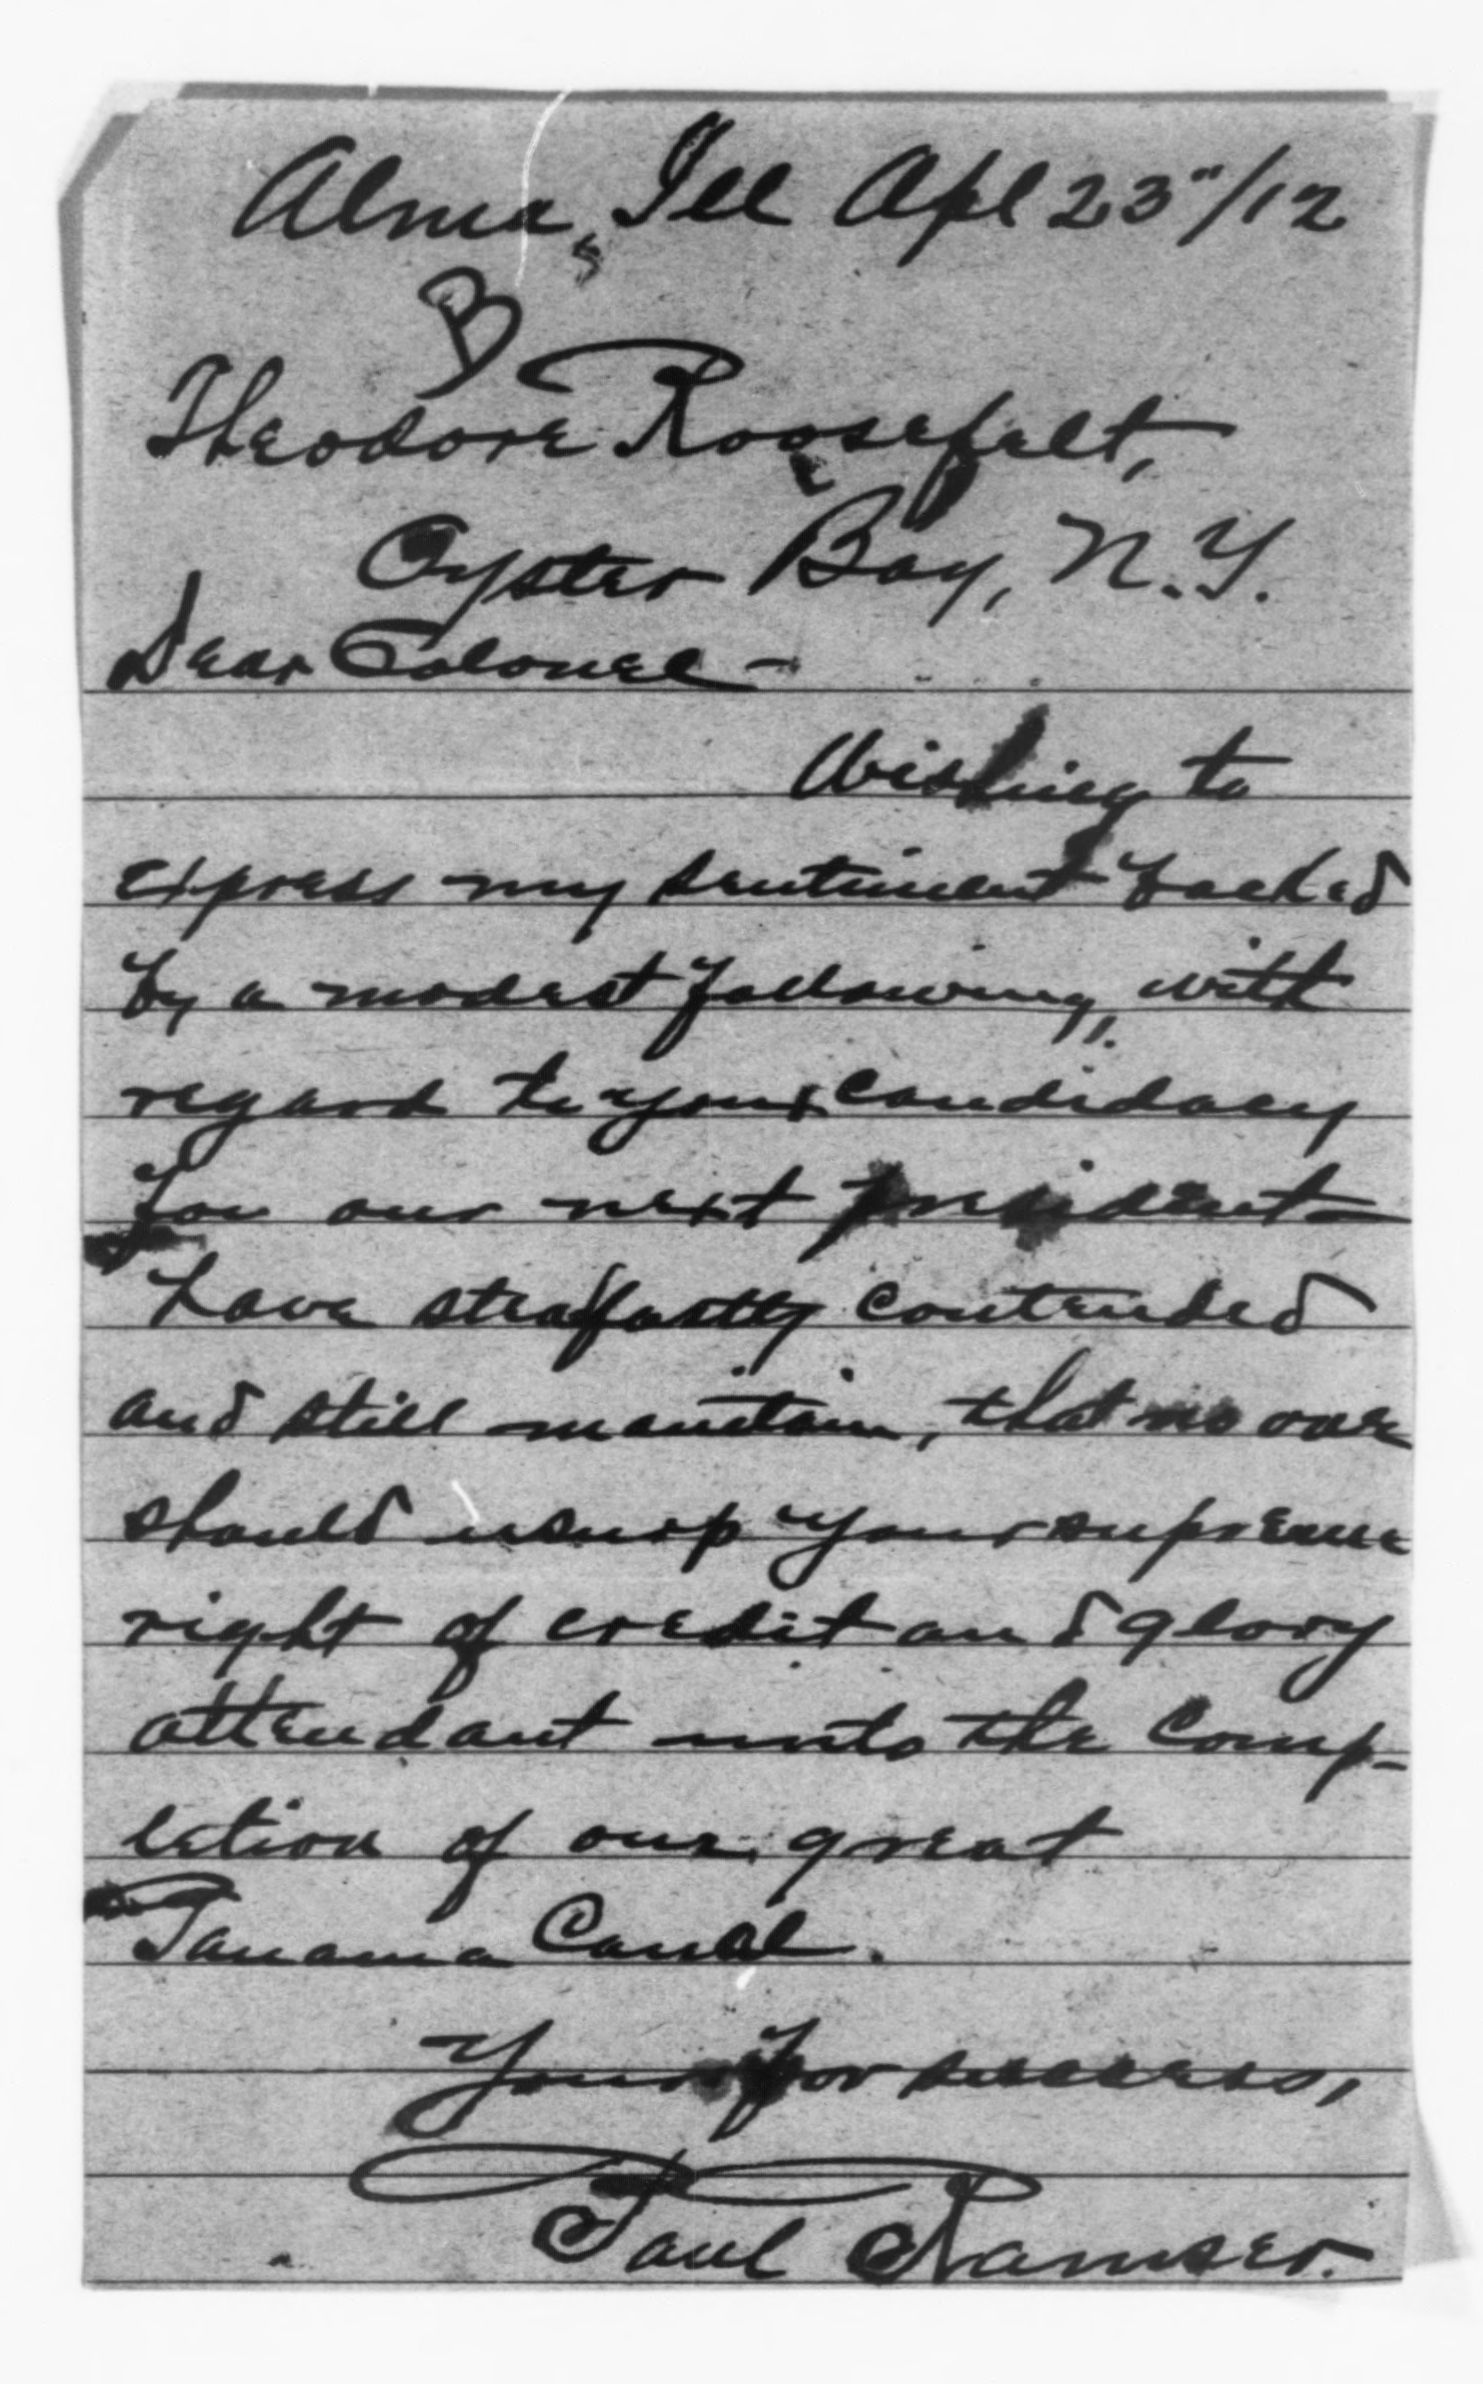 Alma, Ill Apl 23"/12
B
Theodore Roosefelt,
Oyster Bay, N.Y.
Dear Colonel -
Wishing to
express my sentiment backed
by a modest following, with
regard to your candidacy
for our next president -
have steadfastly contended
and still maintain, that no one
should usurp your supreme
right of credit and glory
attendant unto the comp-
letion of our great
Panama Canal.
Yours for success,
Paul Ramser.